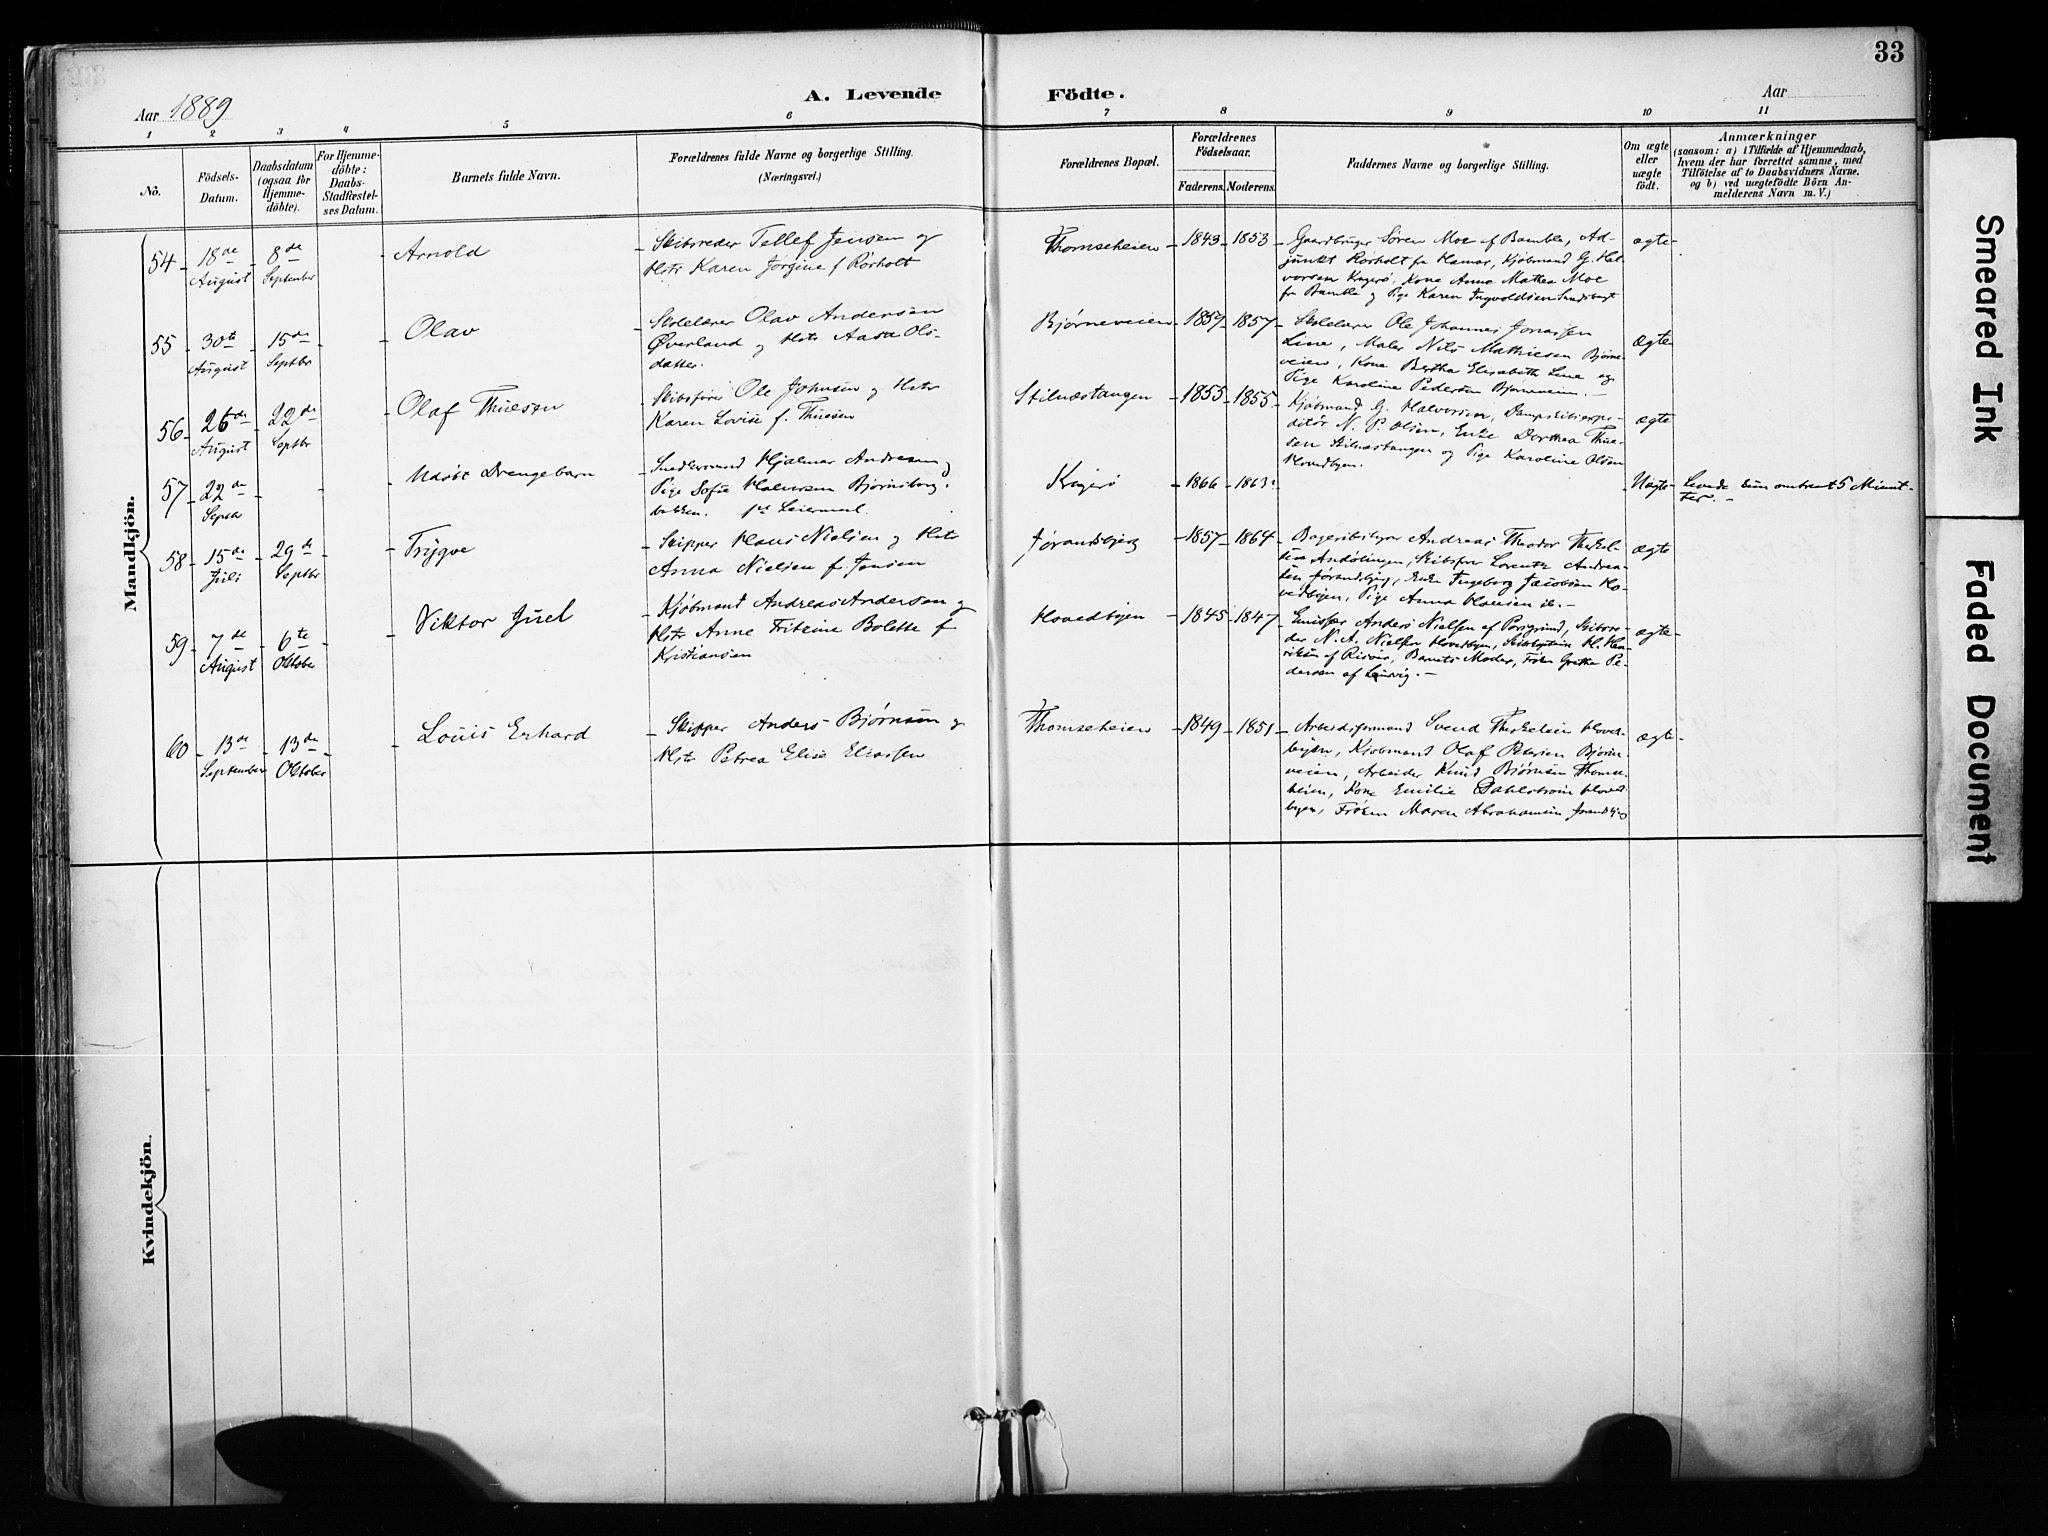 33
Aar 1889
A. Levende Födte.
Aar
1 2 3 4 5 6 7 8 9 10 11
No.
Födsels-
Datum.
Daabsdatum
(ogsaa for
Hjemme-
döbte).
For Hjemme-
döbte:
Daabs-
Stadfæstel-
ses Datum.
Barnets fulde Navn.
Forældrenes fulde Navne og borgerlige Stilling.
(Næringsvei.)
Forældrenes Bopæl.
Forældrenes
Födselsaar.
Faderens. Moderens.
Faddernes Navne og borgerlige Stilling.
Om ægte
eller
uægte
födt.
Anmærkninger
(saasom: a) i Tilfælde af Hjemmedaab,
hvem der har forrettet samme, med
Tilföielse af to Daabsvidners Navne.
og b) ved uægtefödte Börn An-
melderens Navn m. V.)
Mandkjön.
54
18de
August
8de
September
Arnold
Skibsreder Tellef Jensen og
Hstr Karen Jørgine f Rørholt
Thomseheien
1843 1853
Gaardbruger Søren Moe af Bamble, Ad-
junkt Rørholt fra Hamar, Kjøbmand G. Hal-
vorsen Kragerø, Kone Anne Mathea Moe
fra Bamble og Pige Karen Ingvoldsen
ægte
55
30te
August
15de
Septbr
Olav
Skolelærer Olav Andersen
Øverland og Hstr Aasa Ols-
datter.
Bjørneveien
1859 1857
Skolelærer Ole Johannes Jonassen
Line, Maler Nils Mathiesen Bjørne-
veien, Kone Bertha Elisabeth Line og
Pige Karoline Pedersen Bjørneveien.
Ægte
56
26de
August
22de
Septbr
Olaf Thuesen
Skibsfører Ole Johnsen og Hstr
Karen Lovise f. Thuesen
Stilnæstangen
1855 1855
Kjøbmand G. Halvorsen, Dampskibsexpe-
ditør N. P. Olsen, Enke Dorthea Thue-
sen Stilnæstangen og Pige Karoline Olsen
Hovedbyen.
ægte
57
22de
Septbr
Udøbt Drengebarn
Snedkersvend Hjalmar Andresen og
Pige Sofie Halvorsen Bjørnsberg-
bakken. 1ste Leiermaal.
Kragerø
1866 1863
Uægte
Levede kun omtrent 5 Minut-
ter.
58
15de
Juli
29de
Septbr
Trygve
Skipper Hans Nielsen og Hstr
Anna Nielsen f. Jensen
Jørandsbjerg
1857 1864
Bageribestyrer Andreas Theodor Therkel-
sen Andølingen, Skibsfører Lorentz Andrea-
sen Jørandsbjerg, Enke Ingeborg Jacobsen Ho-
vedbyen, Pige Anna Hansen ib.
ægte
59
7de
August
6te
Oktober
Viktor Juel
Kjøbmand Andreas Andersen og
Hstr Anne Fritzine Bolette f
Kristiansen
Hovedbyen
1845 1847
Emissær Anders Nielsen af Porsgrund, Skibsre-
der N. A. Nielsen Hovedbyen, Skibskaptein H. Hen-
riksen af Risør, Barnets Moder, Frøken Grethe Pe-
dersen af Laurvig.
ægte
60
13de
September
13de
Oktober
Louis Erhard
Skipper Anders Bjørnsen og
Hstr Petrea Elise Eliassen
Thomseheien
1849 1851
Arbeidsformand Svend Therkelsen Hoved-
byen, Kjøbmand Olaf Petersen Bjørne-
veien, Arbeider Knud Bjørnsen Thomse-
heien, Kone Emilie Dahlstrøm Hoved-
byen, Frøken Maren Abrahamsen Jørandsbjerg
ægte
Kvindekjön.
Smeared Ink
Faded Document